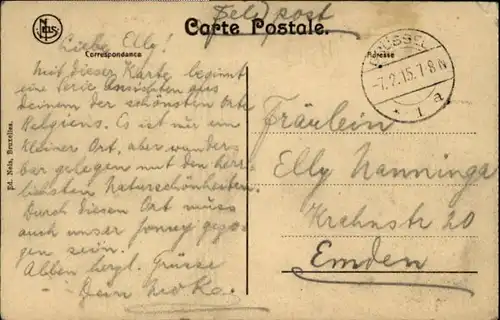 Feldpost
Carte Postale.
Correspondance
Adresse
BRÜSSEL
-7.2.15. 7-8 N
* 1 a
Nels
Ed. Nels, Bruxelles.
Liebe Elly!
Mit dieser Karte beginnt
eine Serie Ansichten aus
einem der schönsten Orte
Belgiens. Es ist nur ein
kleiner Ort, aber wunder-
bar gelegen mit den herr-
lichsten Naturschönheiten.
Durch diesen Ort muss
auch unser Jonny gezo-
gen sein.
Allen herzl. Grüsse
Dein
Fräulein
Elly Nanninga
Krahnstr 20
Emden